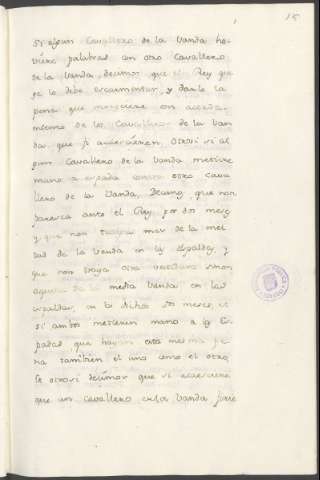 15
Si algun Cavallero de la Vanda ho-
viere palabras con otro Cavallero
de la Vanda, decimos que el Rey que
se lo debe escarmentar, y darle la
pena que meresciere con acuerdo
mesmo de los Cavalleros de la Van
da que se acaescieren, otrosi si al
gun Cavallero de la Vanda metiere
mano a espada contra otro Cava
llero de la Vanda, Decimos, que non
paresca ante el Rey por dos meses
y que non traiga mas de la mei
tad de la Vanda en las Espaldas y
que non vaya otra vestidura sinon
aquella de la media Vanda en las
espaldas, en los dichos dos meses, et
si ambos metieren mano a las Es
padas que hayan esta mesma pe
na tambien el uno como el otro,
Et otrosi decimos que si acaesciere
que un cavallero de la Vanda fuere